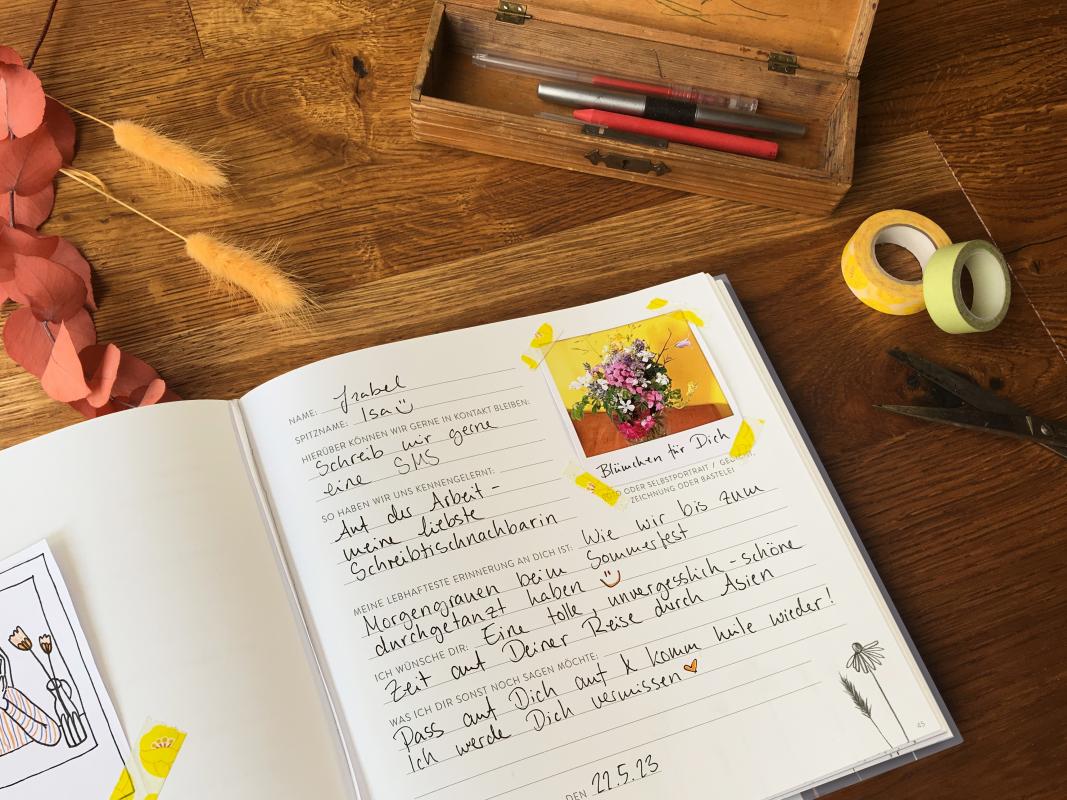 NAME: Isabel
SPITZNAME: Isa
HIERÜBER KÖNNEN WIR GERNE IN KONTAKT BLEIBEN:
Schreib mir gerne
eine SMS
SO HABEN WIR UNS KENNENGELERNT:
Auf der Arbeit -
meine liebste
Schreibtischnachbarin
Blümchen für Dich
ODER SELBSTPORTRAIT /
ZEICHNUNG ODER BASTELEI
MEINE LEBHAFTESTE ERINNERUNG AN DICH IST: Wie wir bis zum
Morgengrauen beim Sommerfest
durchgetanzt haben
ICH WÜNSCHE DIR: Eine tolle, unvergesslich-schöne
Zeit auf Deiner Reise durch Asien
WAS ICH DIR SONST NOCH SAGEN MÖCHTE:
Pass auf Dich auf & komm heile wieder!
Ich werde Dich vermissen
DEN 22.5.23
45